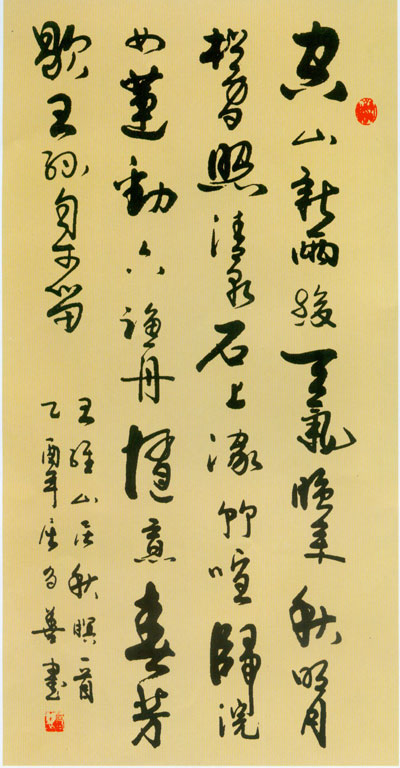 空山新雨後天氣晚来秋明月
松間照清泉石上流竹喧歸浣
女蓮動下漁舟隨意春芳
歇王孫自可留
王維山居秋暝一首
乙酉年善書